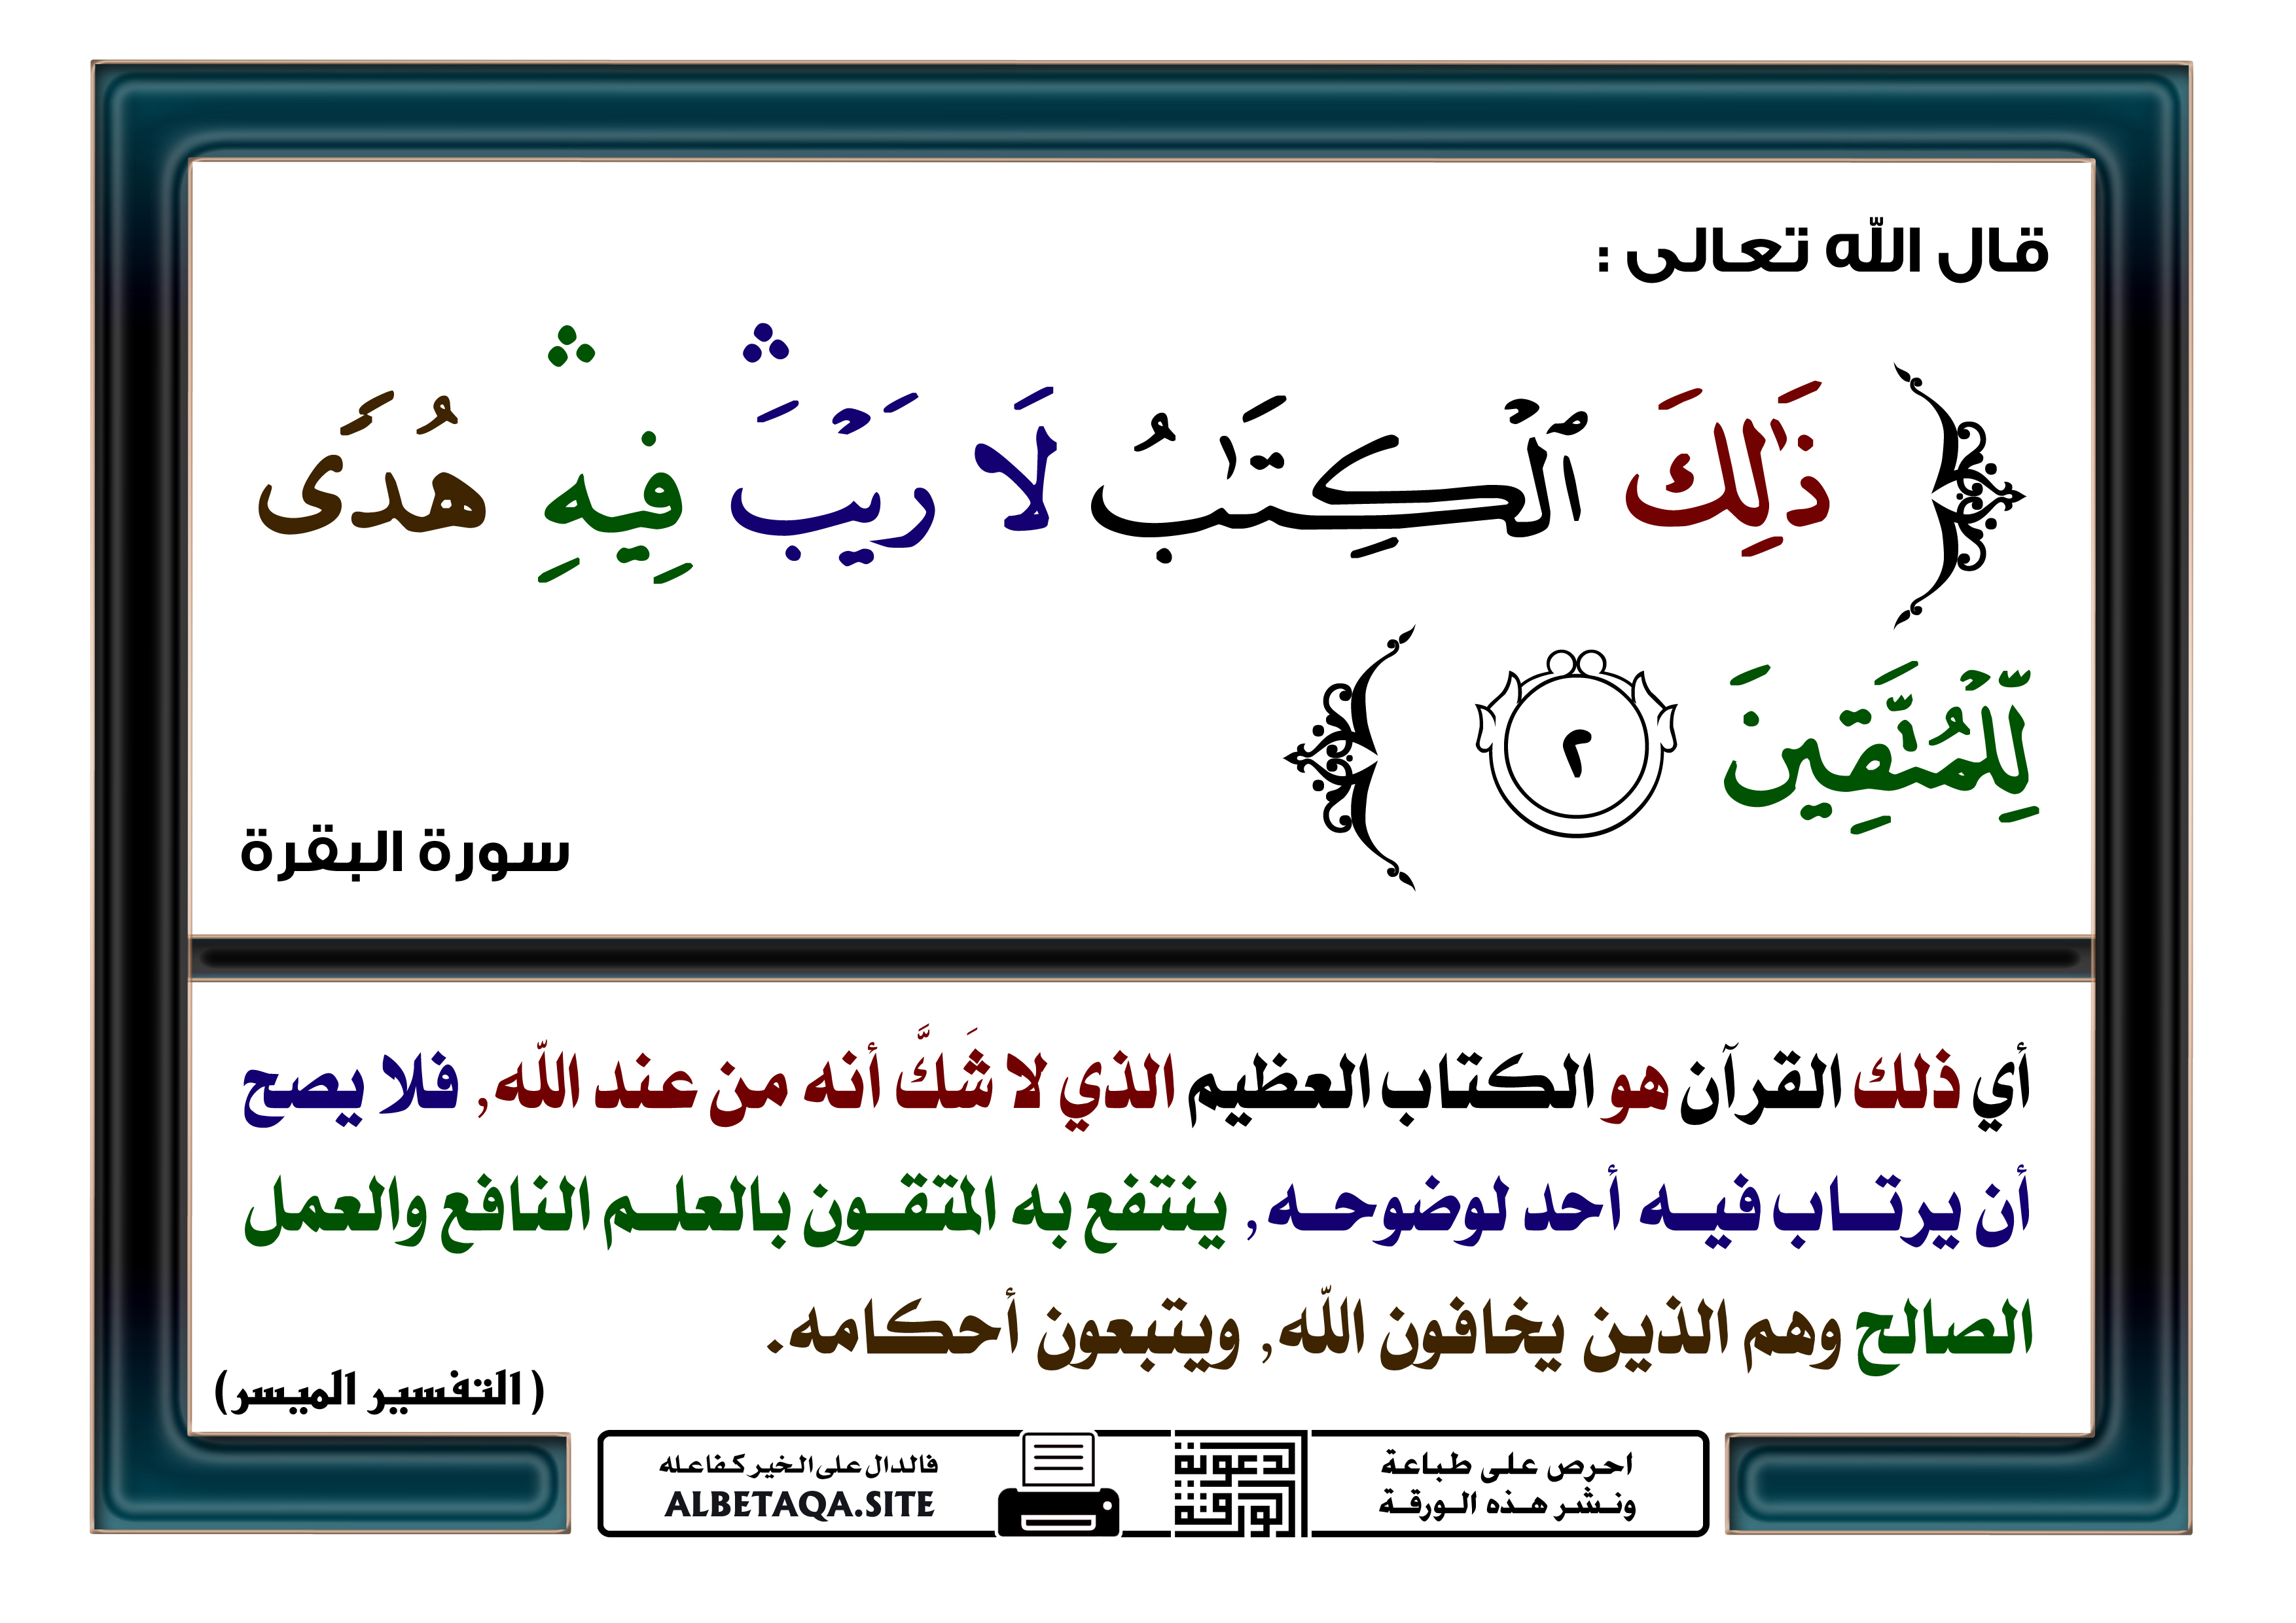 قال الله تعالى :
ذَٰلِكَ ٱلۡكِتَٰبُ لَا رَيۡبَۛ فِيهِۛ هُدٗى
لِّلۡمُتَّقِينَ ٢
سورة البقرة
أي ذلك القرآن هو الكتاب العظيم الذي لا شَكَّ أنه من عند الله, فلا يصح
أن يرتـاب فيـه أحد لوضوحـه, ينتفع به المتقـون بالعلـم النافع والعمل
الصالح وهم الذين يخافون الله, ويتبعون أحكامه.
( التفسير الميسر)
احرص على طباعة
ونشر هذه الورقة
لدعوية
الورقة
فالدال على الخير كفاعله
ALBETAQA.SITE